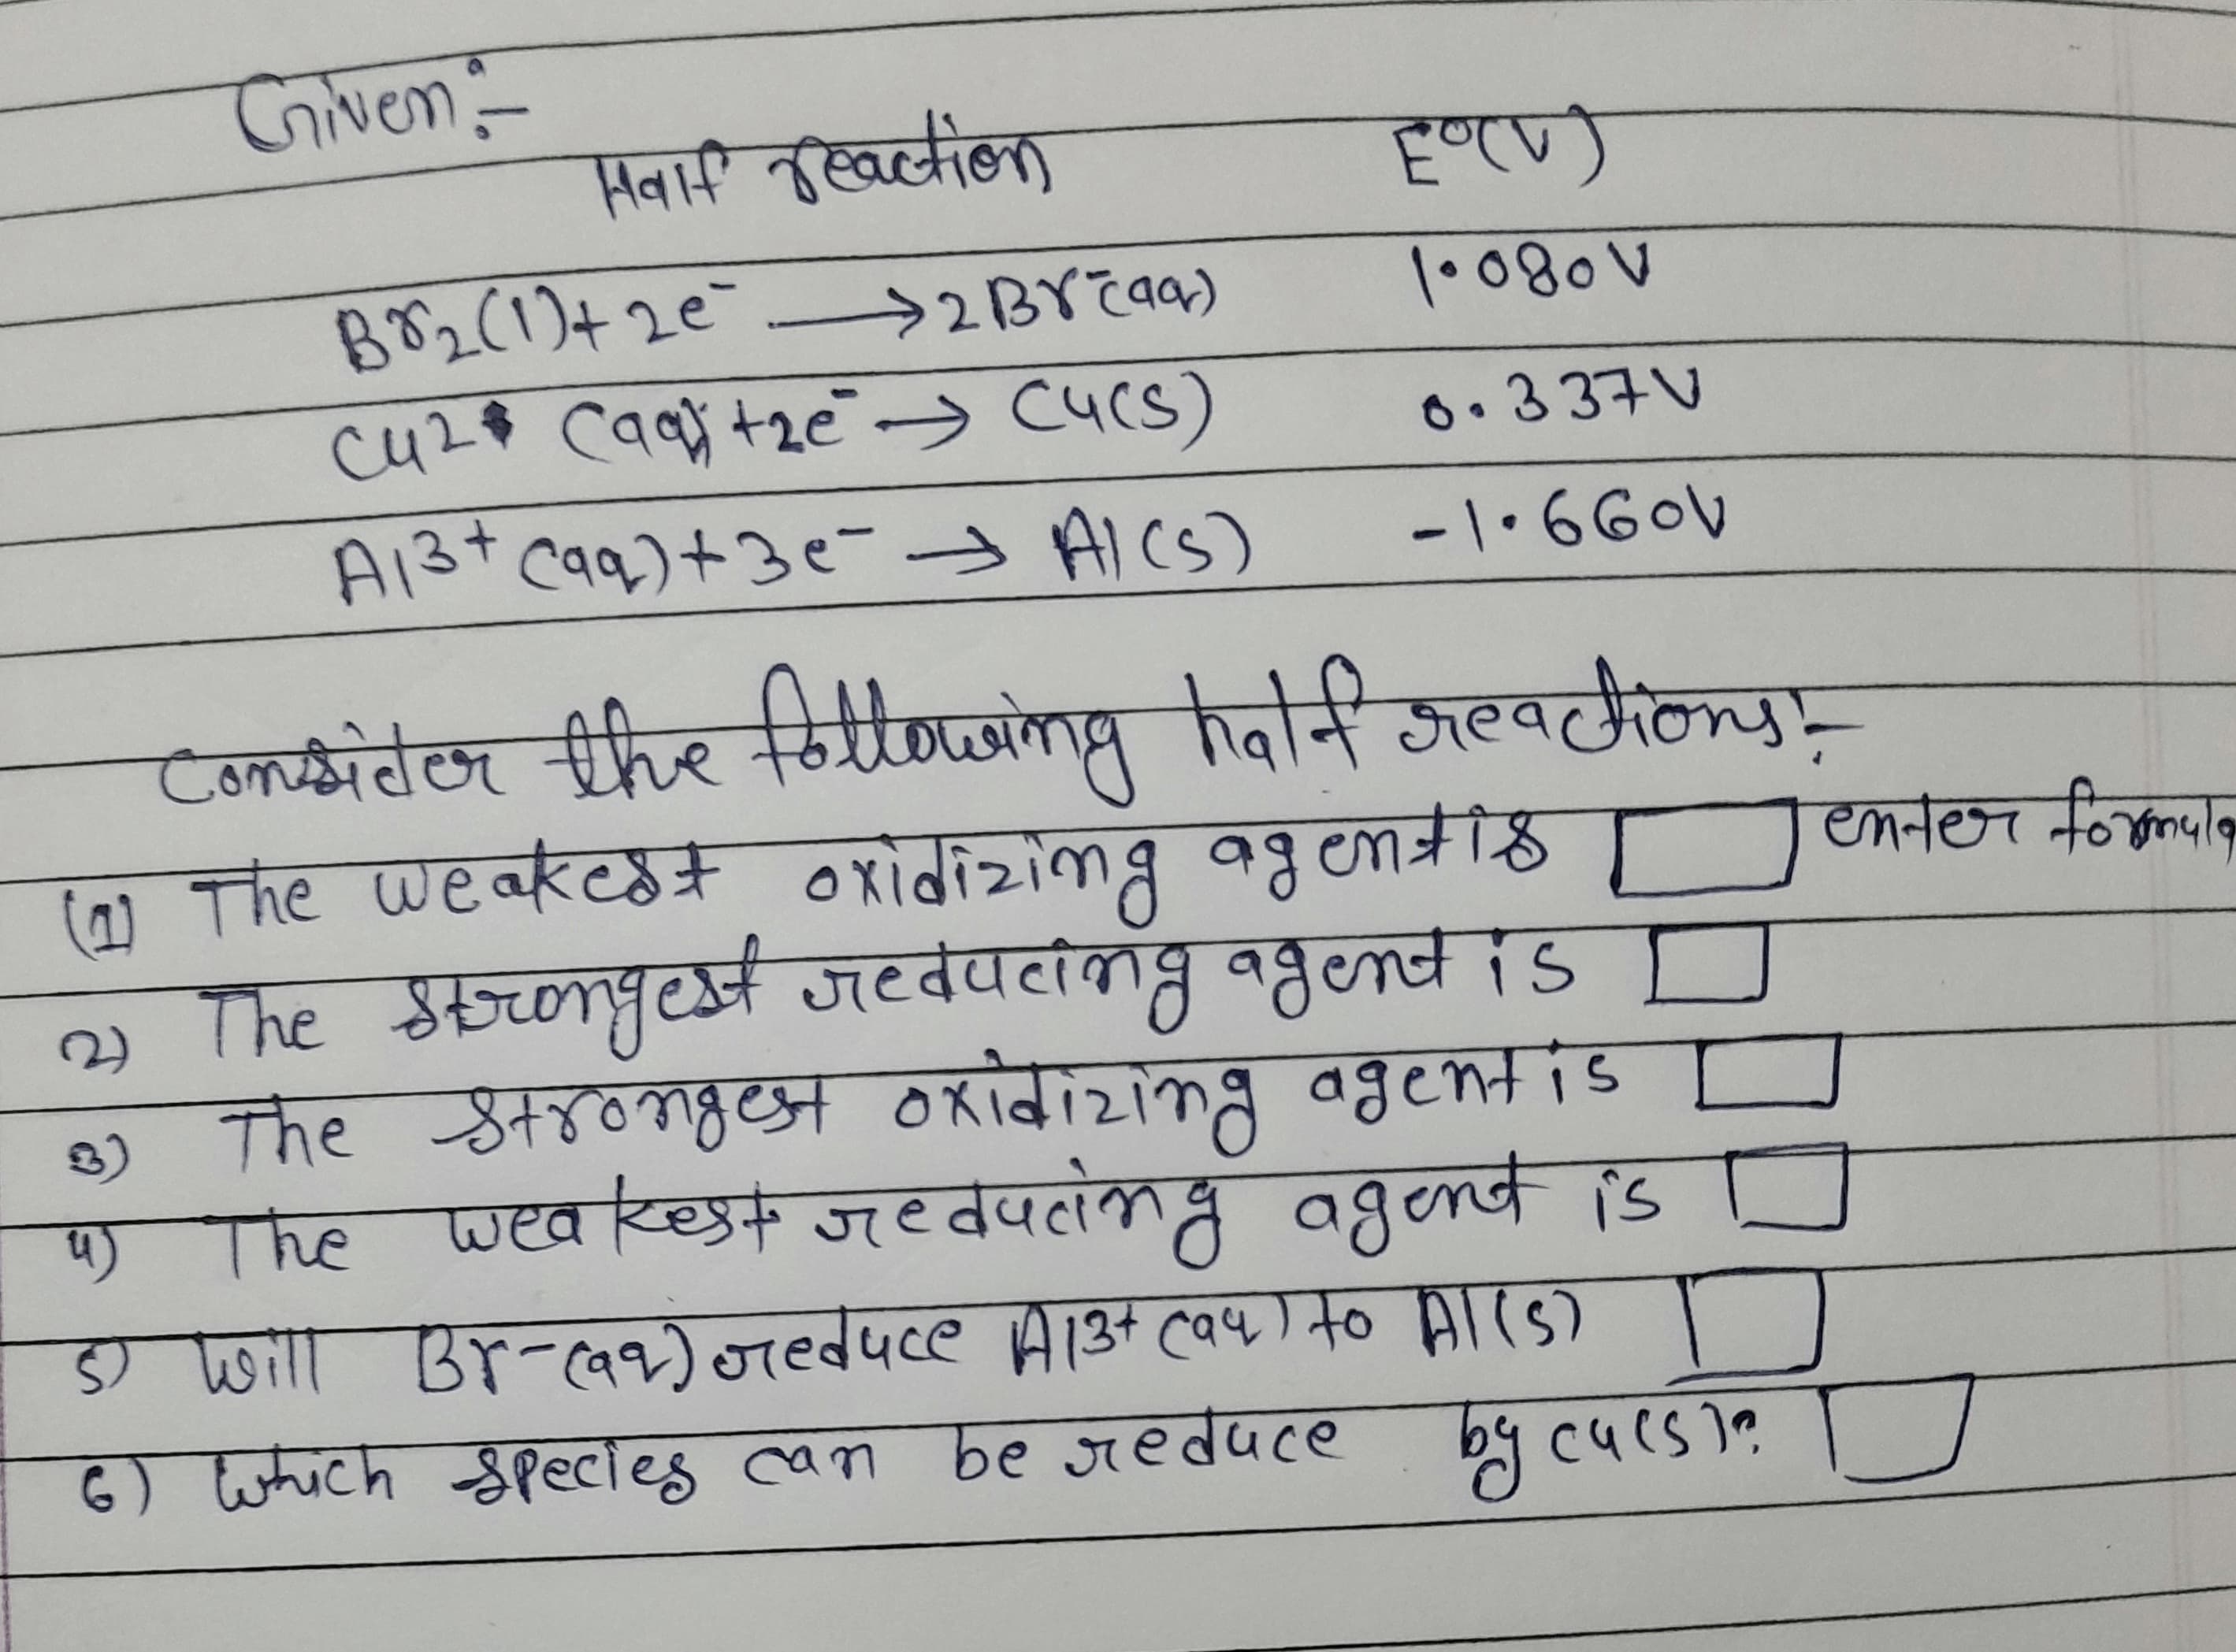 Given:-
Half reaction E°(V)
Br2(l)+2e- → 2Br-(aq) 1.080V
Cu2+ (aq)+2e- → Cu(s) 0.337V
Al3+(aq)+3e- → Al(s) -1.660V
Consider the following half reactions:-
(1) The weakest oxidizing agent is enter formula
2) The strongest reducing agent is
3) The strongest oxidizing agent is
4) The weakest reducing agent is
5) Will Br-(aq) reduce Al3+(aq) to Al(s)
6) Which species can be reduce by Cu(s)?